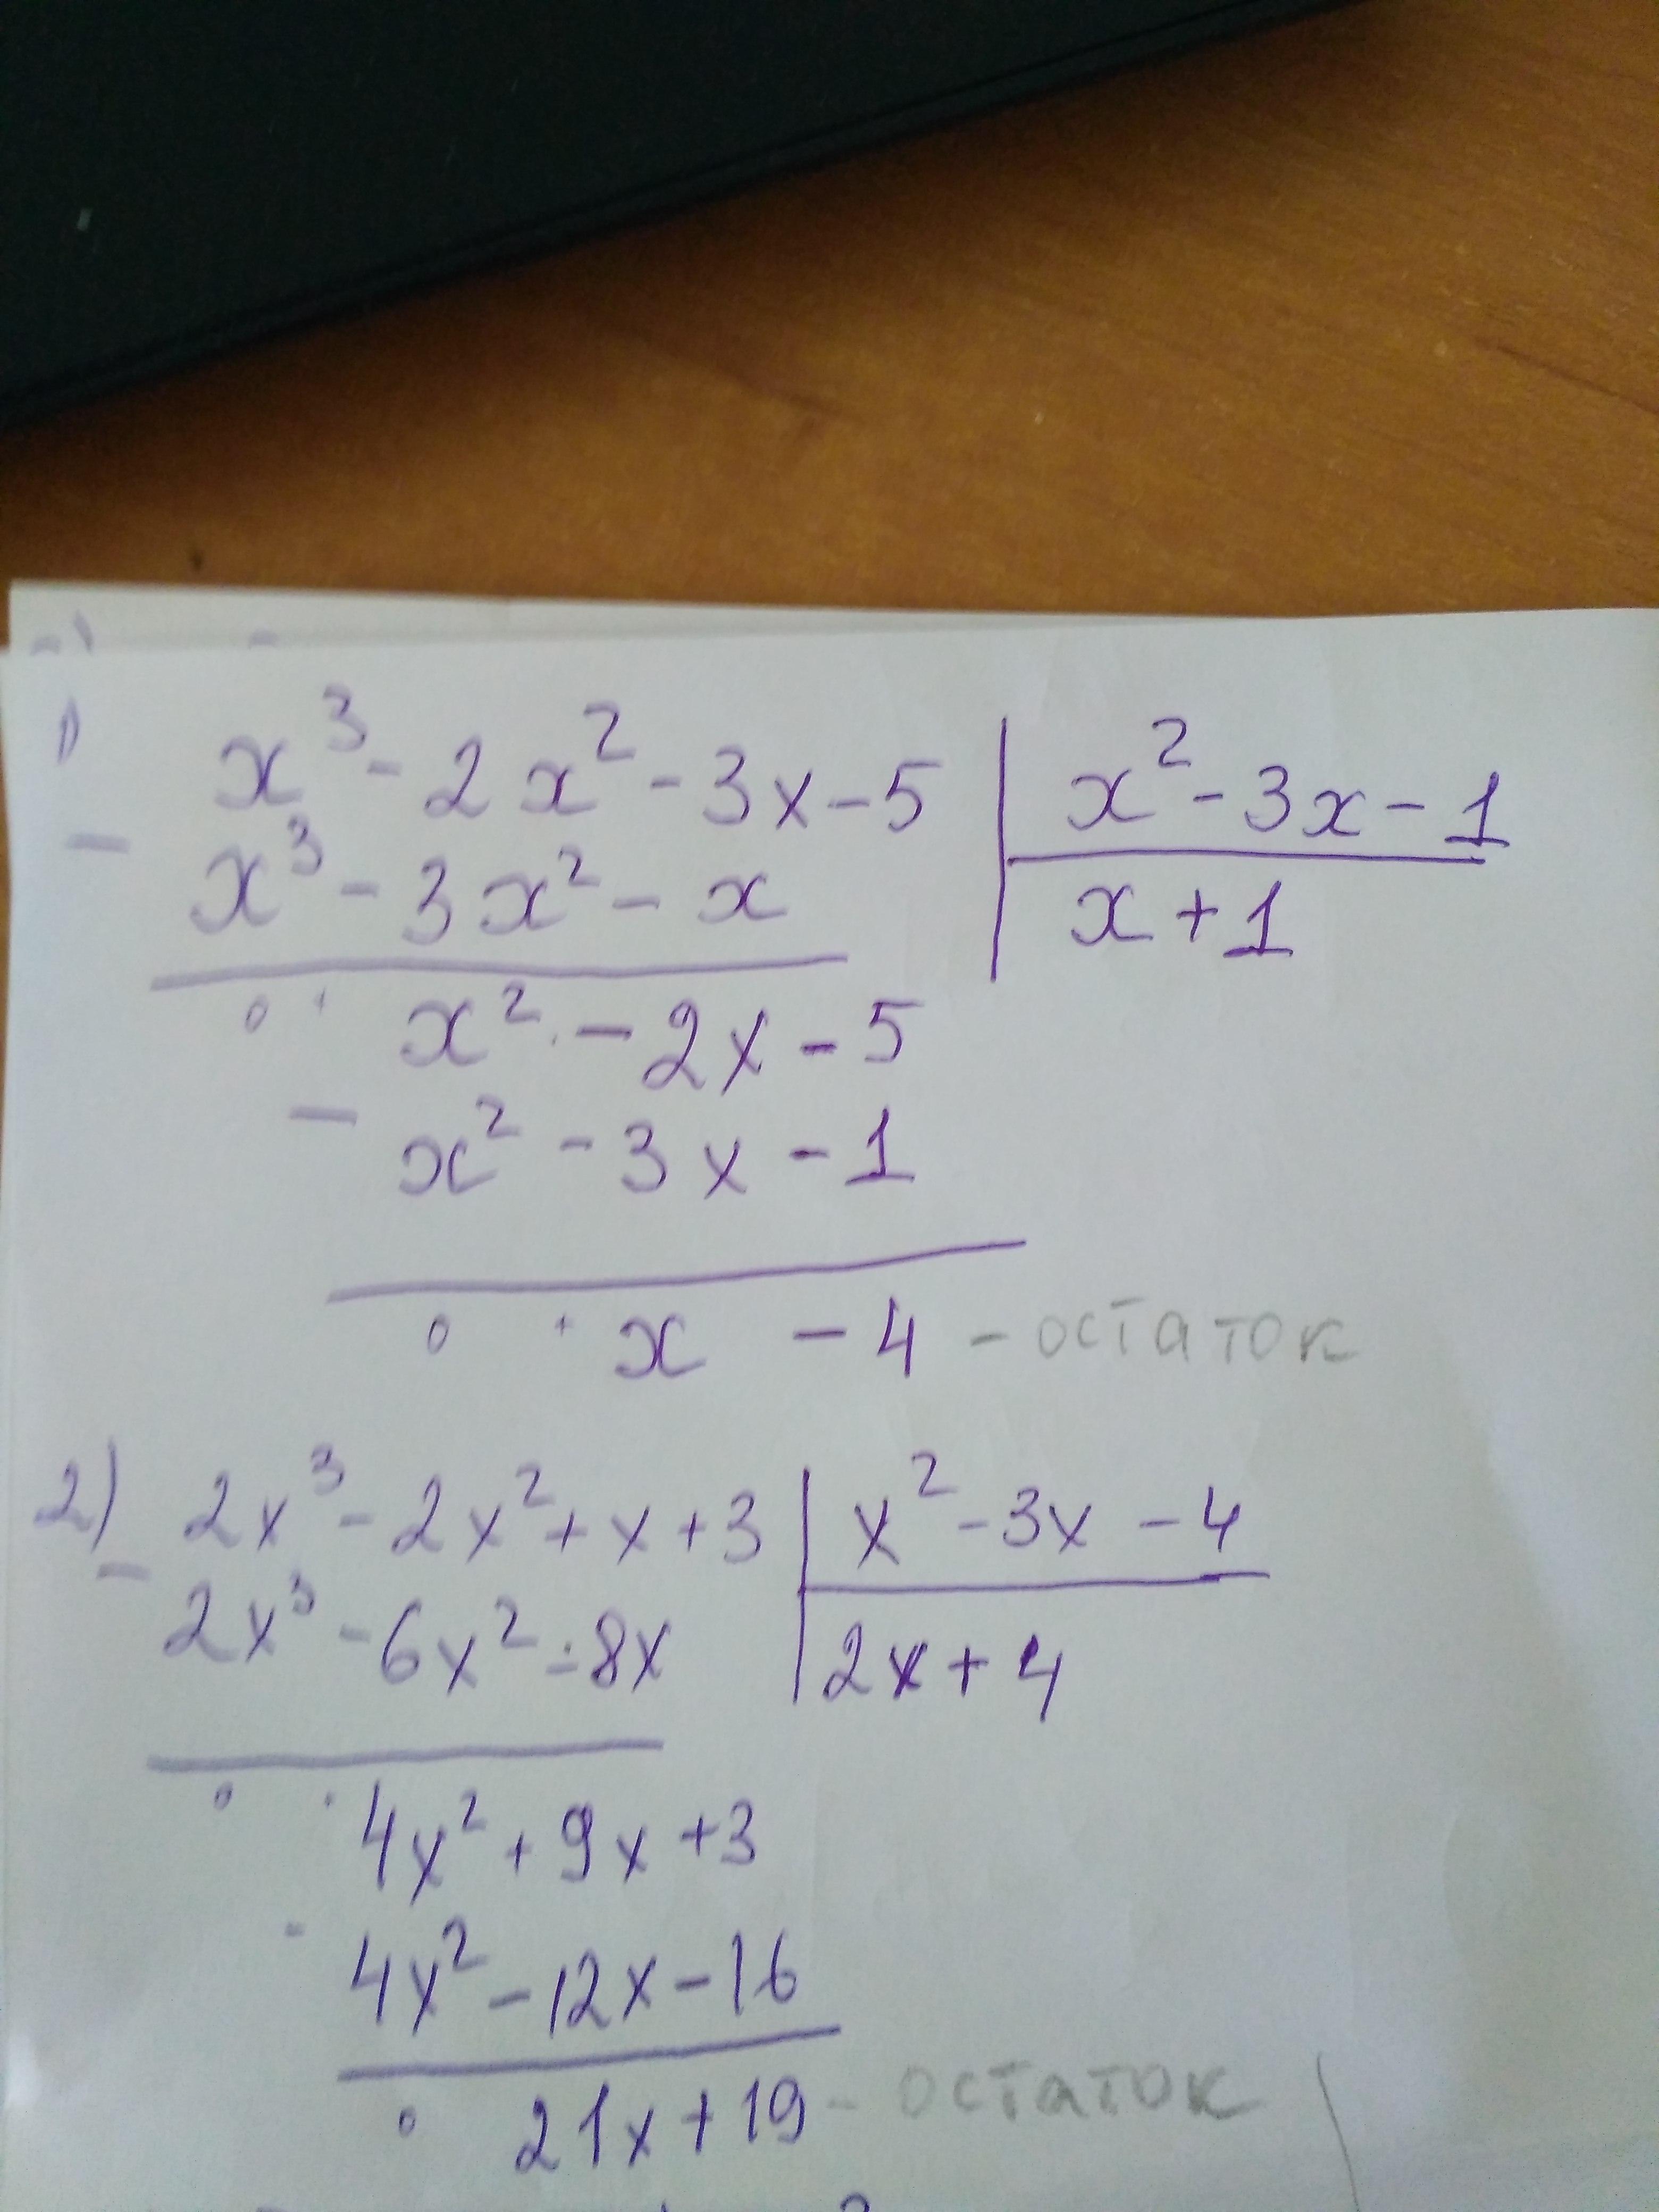 1) x³ - 2x² - 3x - 5 | x² - 3x - 1
- x³ - 3x² - x | x + 1
0 + x² - 2x - 5
- x² - 3x - 1
0 + x - 4 - остаток
2) 2x³ - 2x² + x + 3 | x² - 3x - 4
- 2x³ - 6x² - 8x | 2x + 4
0 4x² + 9x + 3
- 4x² - 12x - 16
0 21x + 19 - остаток